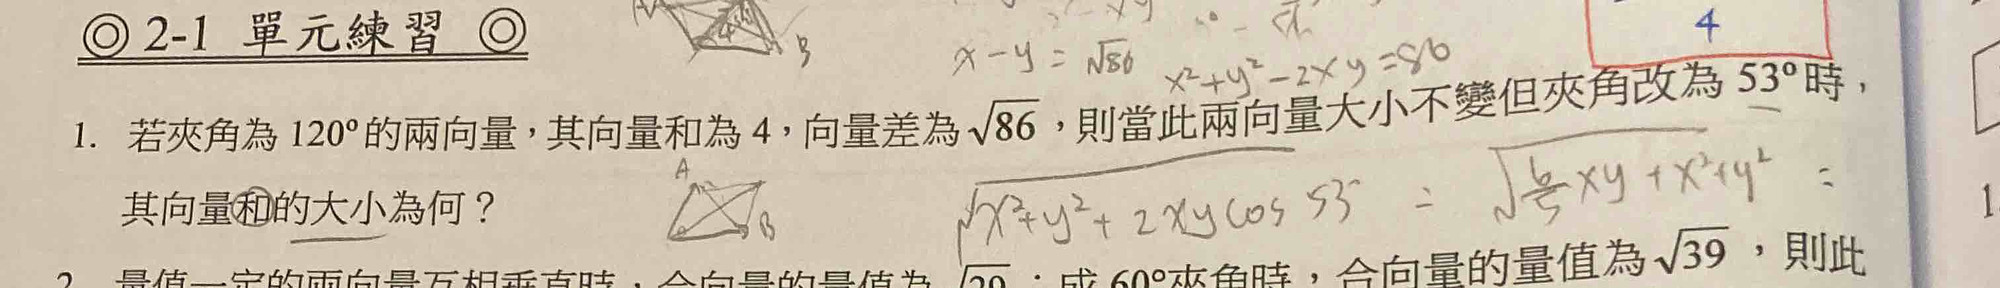 ◎ 2-1 單元練習 ◎
B
x - y = √86
x² + y² - 2xy = 86
4
1. 若夾角為 120° 的兩向量，其向量和為 4，向量差為 √86，則當此兩向量大小不變但夾角改為 53° 時，
其向量和的大小為何？
A
B
√x²+y²+2xy cos 53° = √6/5 xy + x²+y² =
2. 量值一定的兩向量互相垂直時，合向量的量值為 √29；成 60° 夾角時，合向量的量值為 √39，則此
1